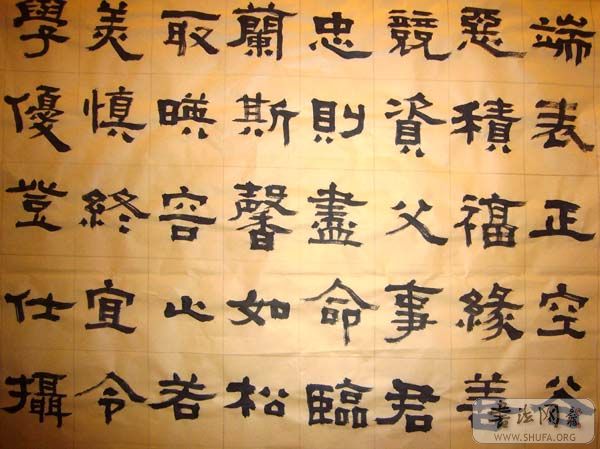 端表正空谷
惡積福緣善
競資父事君
忠則盡命臨
蘭斯馨如松
取暎容止若
美慎終宜令
學優登仕攝
WWW.SHUFA.ORG